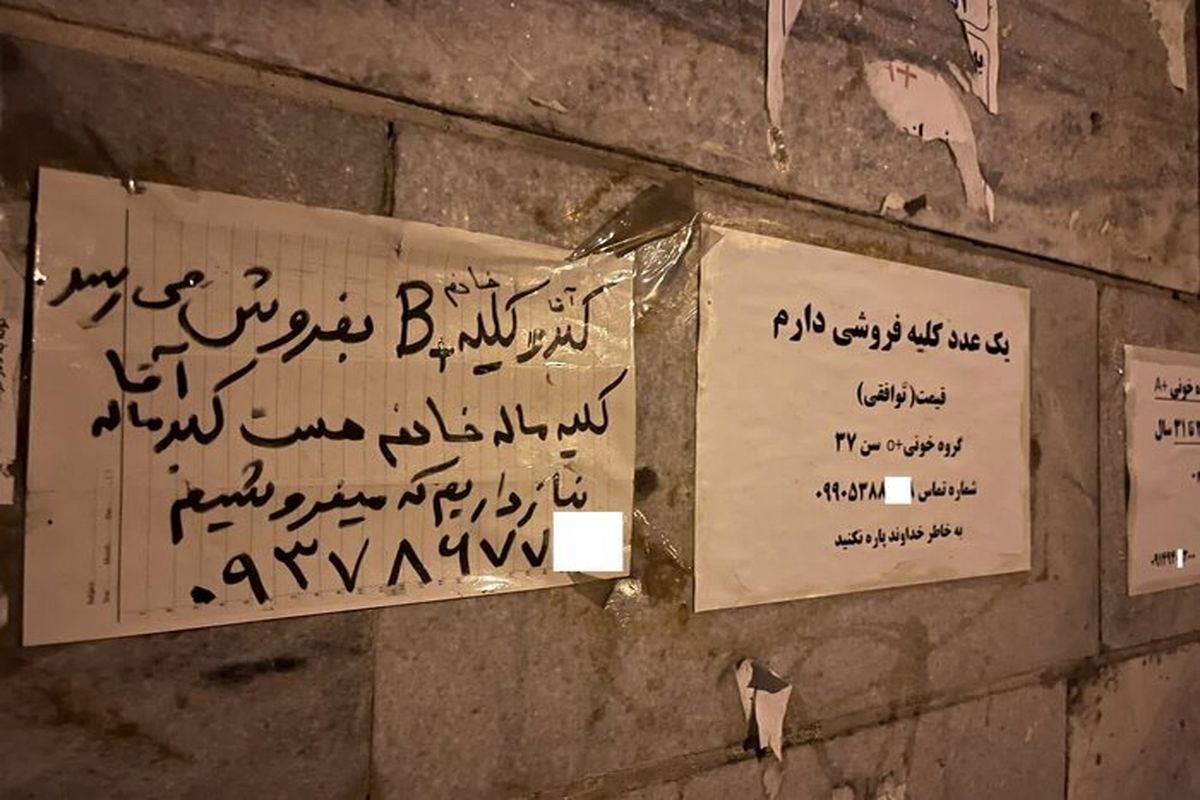 آقا خانم
کبد کلیه B+ بفروش می رسد
کلیه ماله خانم هست کبد ماله آقا
نیاز داریم که میفروشیم
۰۹۳۷۸۶۷۷
یک عدد کلیه فروشی دارم
قیمت( توافقی)
گروه خونی+o سن ۳۷
شماره تماس ۰۹۹۰۵۳۸۸
به خاطر خداوند پاره نکنید
خونی +A
تا ۳۱ سال